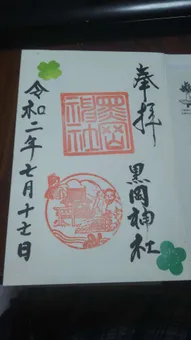 奉拝
黒岡神社
黒岡神社
令和二年七月十七日